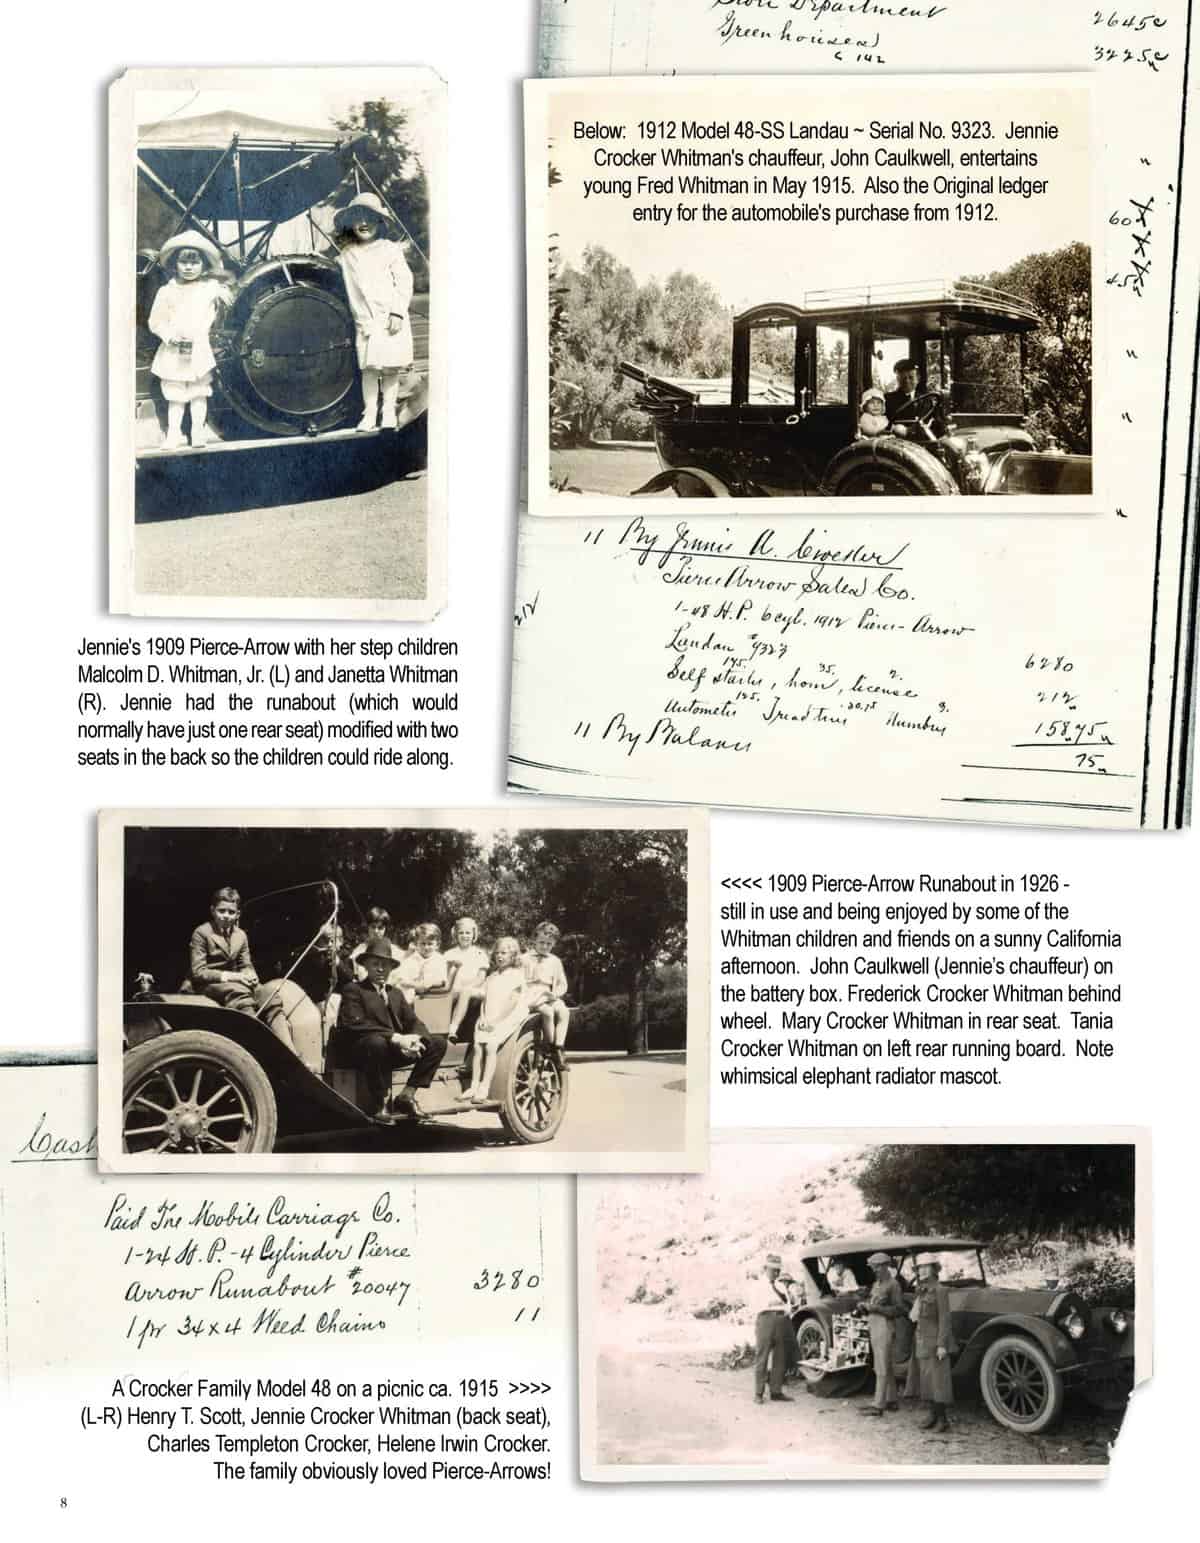 Store Department 2645c
Greenhouses 3225c
c 142
Below: 1912 Model 48-SS Landau ~ Serial No. 9323. Jennie
Crocker Whitman's chauffeur, John Caulkwell, entertains
young Fred Whitman in May 1915. Also the Original ledger
entry for the automobile's purchase from 1912.
60
45
" By Jennie A. Crocker
Pierce Arrow Sales Co.
1-48 H.P. 6 cyl. 1912 Pierce-Arrow
Landau #9323 6280
175. 35. 2.
Self starter, horn, license 212
125. 20.75 3.
Autometer Treadtire Numbers 158.75
" By Balance 75
212
Jennie's 1909 Pierce-Arrow with her step children
Malcolm D. Whitman, Jr. (L) and Janetta Whitman
(R). Jennie had the runabout (which would
normally have just one rear seat) modified with two
seats in the back so the children could ride along.
<<<< 1909 Pierce-Arrow Runabout in 1926 -
still in use and being enjoyed by some of the
Whitman children and friends on a sunny California
afternoon. John Caulkwell (Jennie's chauffeur) on
the battery box. Frederick Crocker Whitman behind
wheel. Mary Crocker Whitman in rear seat. Tania
Crocker Whitman on left rear running board. Note
whimsical elephant radiator mascot.
Cash
Paid The Mobile Carriage Co.
1-24 H.P.-4 Cylinder Pierce
Arrow Runabout #20047 3280
1 pr 34x4 Weed Chains 11
A Crocker Family Model 48 on a picnic ca. 1915 >>>>
(L-R) Henry T. Scott, Jennie Crocker Whitman (back seat),
Charles Templeton Crocker, Helene Irwin Crocker.
The family obviously loved Pierce-Arrows!
8